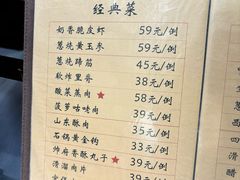 经典菜
奶香脆皮虾 59元/例
葱烧黄玉参 59元/例
葱烧蹄筋 45元/例
软炸里脊 38元/例
酸菜蒸肉★ 58元/例
菠萝咕咾肉 39元/例
山东酥肉 35元/例
石锅黄金钩 33元/例
帅府香酥丸子★ 39元/例
清溜肉片